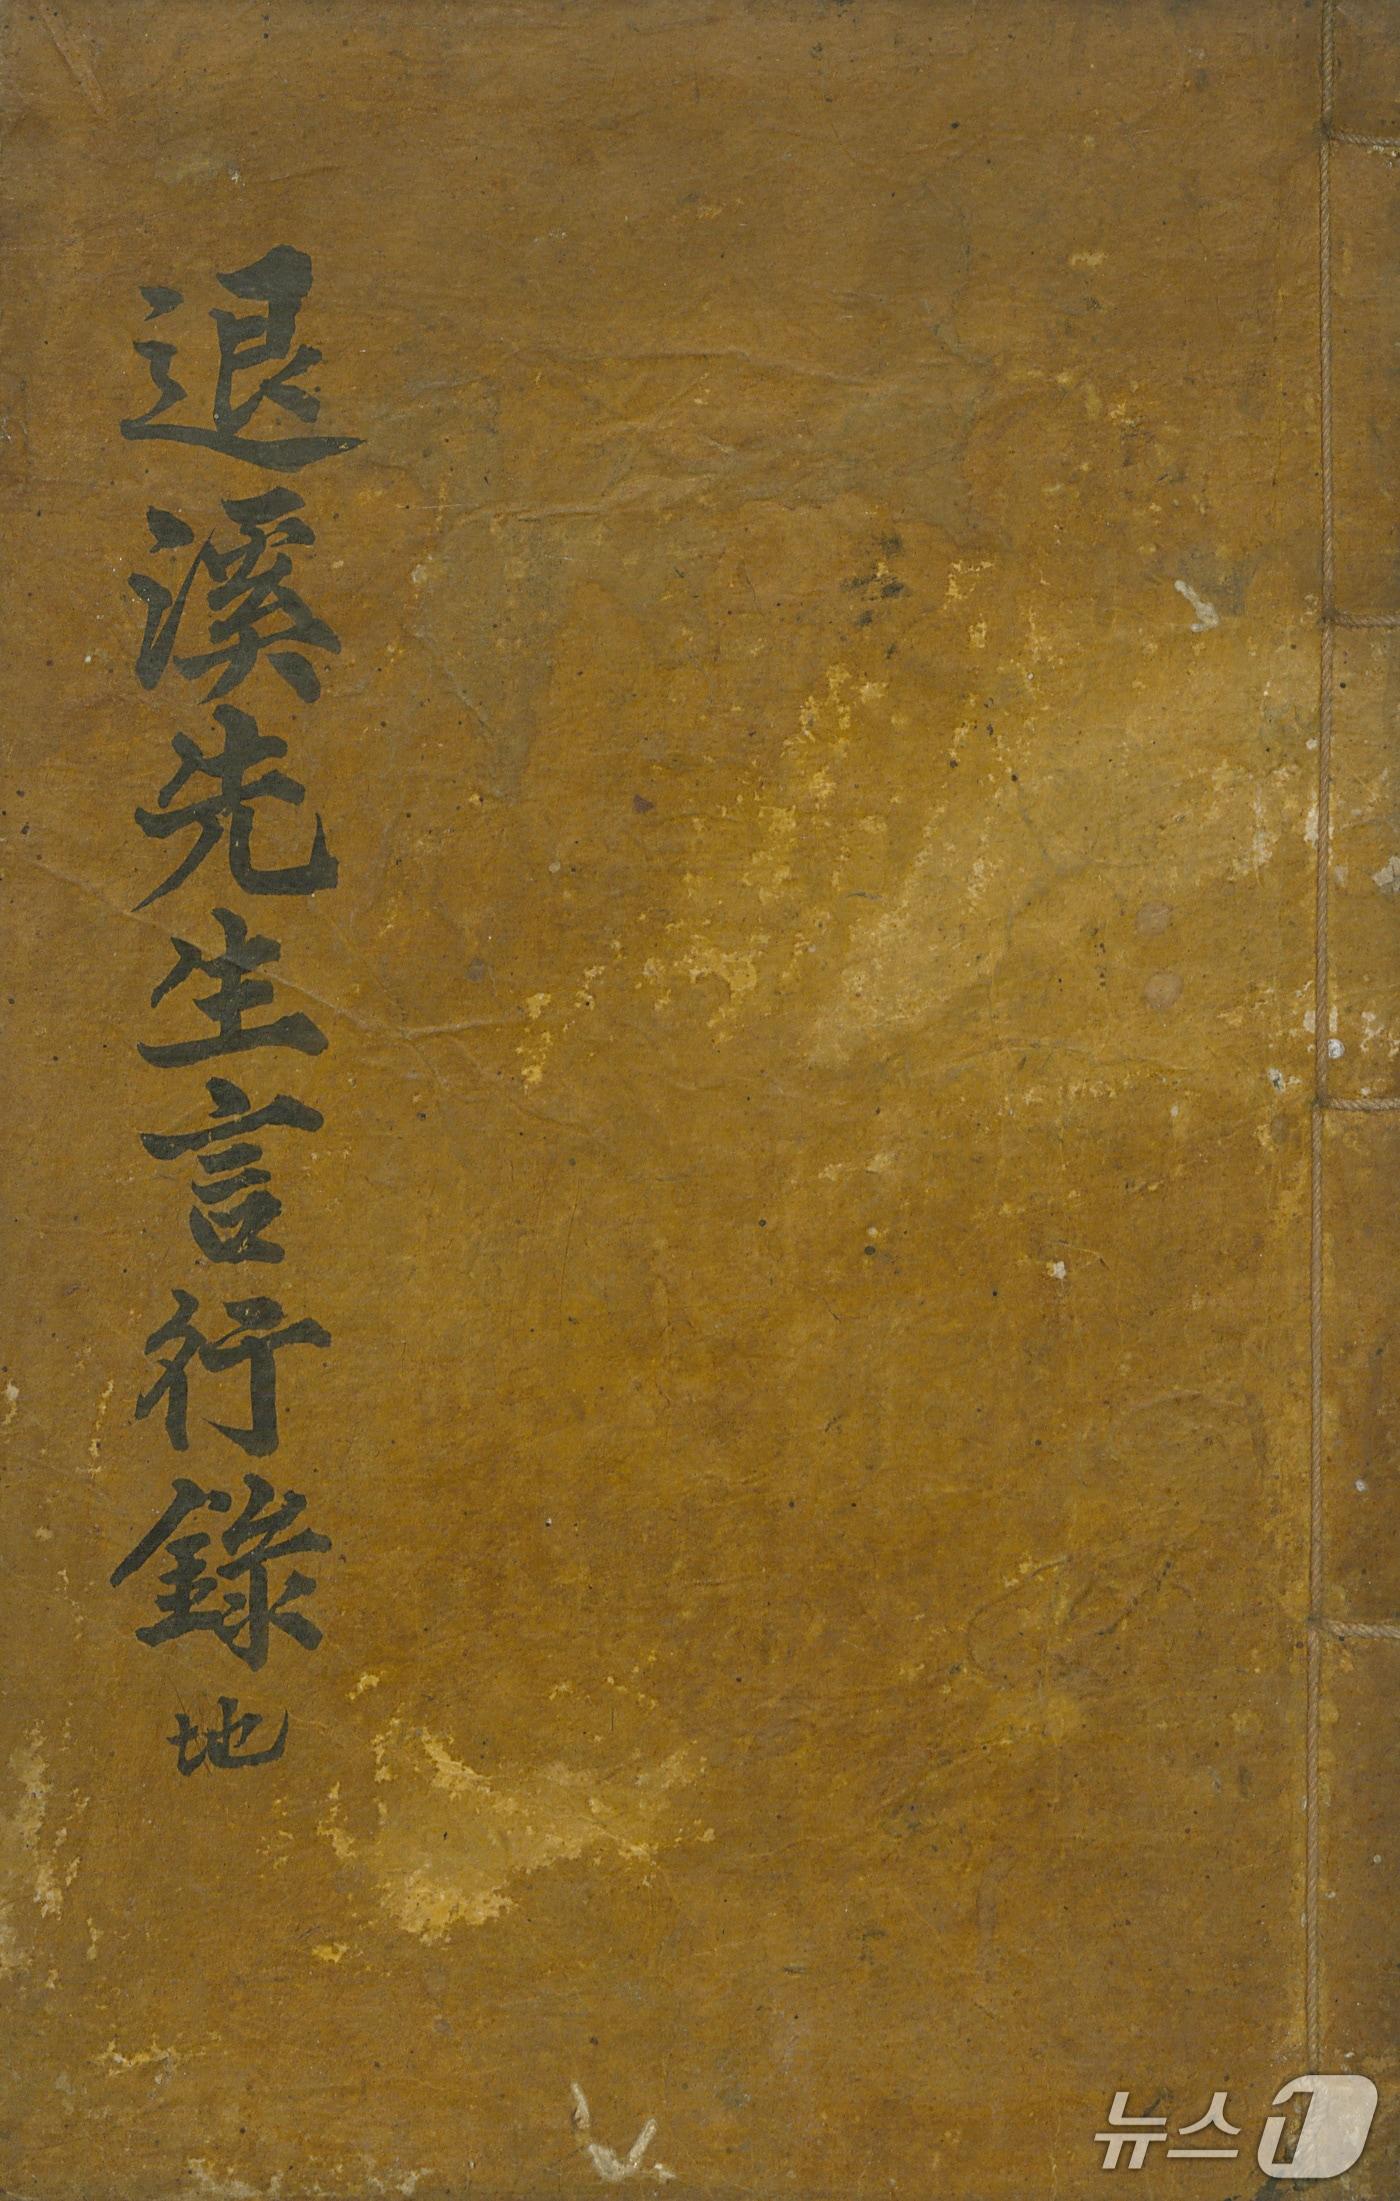 退溪先生言行錄 地
뉴스1